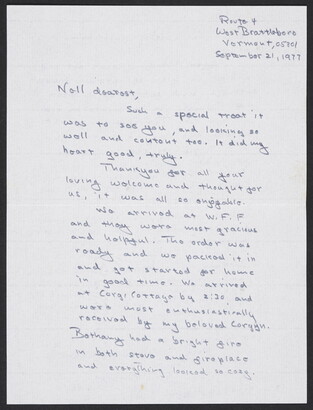 Route 4
West Brattleboro
Vermont, 05301
September 21, 1977
Nell dearest,
Such a special treat it
was to see you, and looking so
well and content too. It did my
heart good, truly.
Thankyou for all your
loving welcome and thought for
us, it was all so enjoyable.
We arrived at W.F.F
and they were most gracious
and helpful. The order was
ready and we packed it in
and got started for home
in good time. We arrived
at Corgi Cottage by 5:30, and
were most enthusiastically
received by my beloved Corgyn.
Bethany had a bright fire
in both stove and fireplace
and everything looked so cozy.